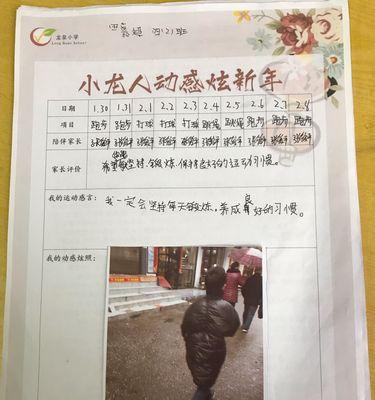 龙泉小学
Long Quan School
四(2)班
小龙人动感炫新年
日期 1.30 1.31 2.1 2.2 2.3 2.4 2.5 2.6 2.7 2.8
项目 跑步 跑步 打球 打球 打球 跳绳 跳绳 跑步 跑步 跑步
陪伴家长
家长评价 希望 坚持锻炼,保持良好的运动习惯。
我的运动感言: 我一定会坚持每天锻炼,养成良好的习惯。
我的动感炫照: